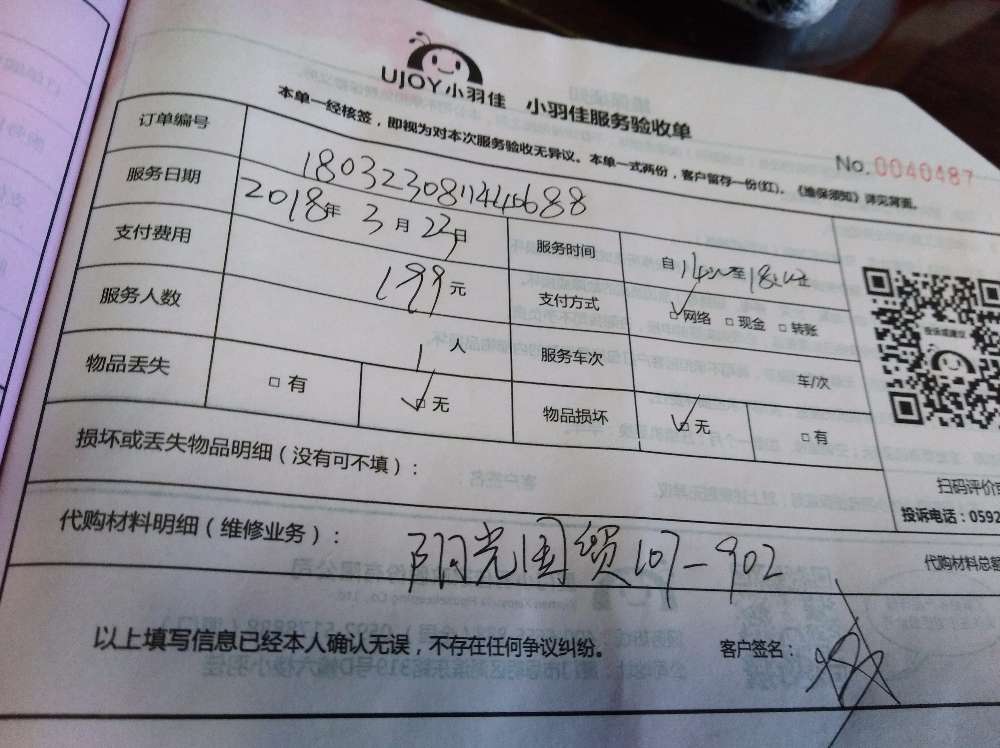 UJOY小羽佳 小羽佳服务验收单
本单一经核签，即视为对本次服务验收无异议。本单一式两份，客户留存一份(红)。《维保须知》详见背面。
No.0040487
订单编号
服务日期 2018年3月23日
服务时间 自 至
支付费用 199元
支付方式 网络 现金 转账
服务人数 1人
服务车次 车/次
物品丢失 有 无
物品损坏 无 有
损坏或丢失物品明细（没有可不填）：
扫码评价
投诉电话：0592
代购材料明细（维修业务）： 阳光国贸107-902
代购材料总额
以上填写信息已经本人确认无误，不存在任何争议纠纷。
客户签名：